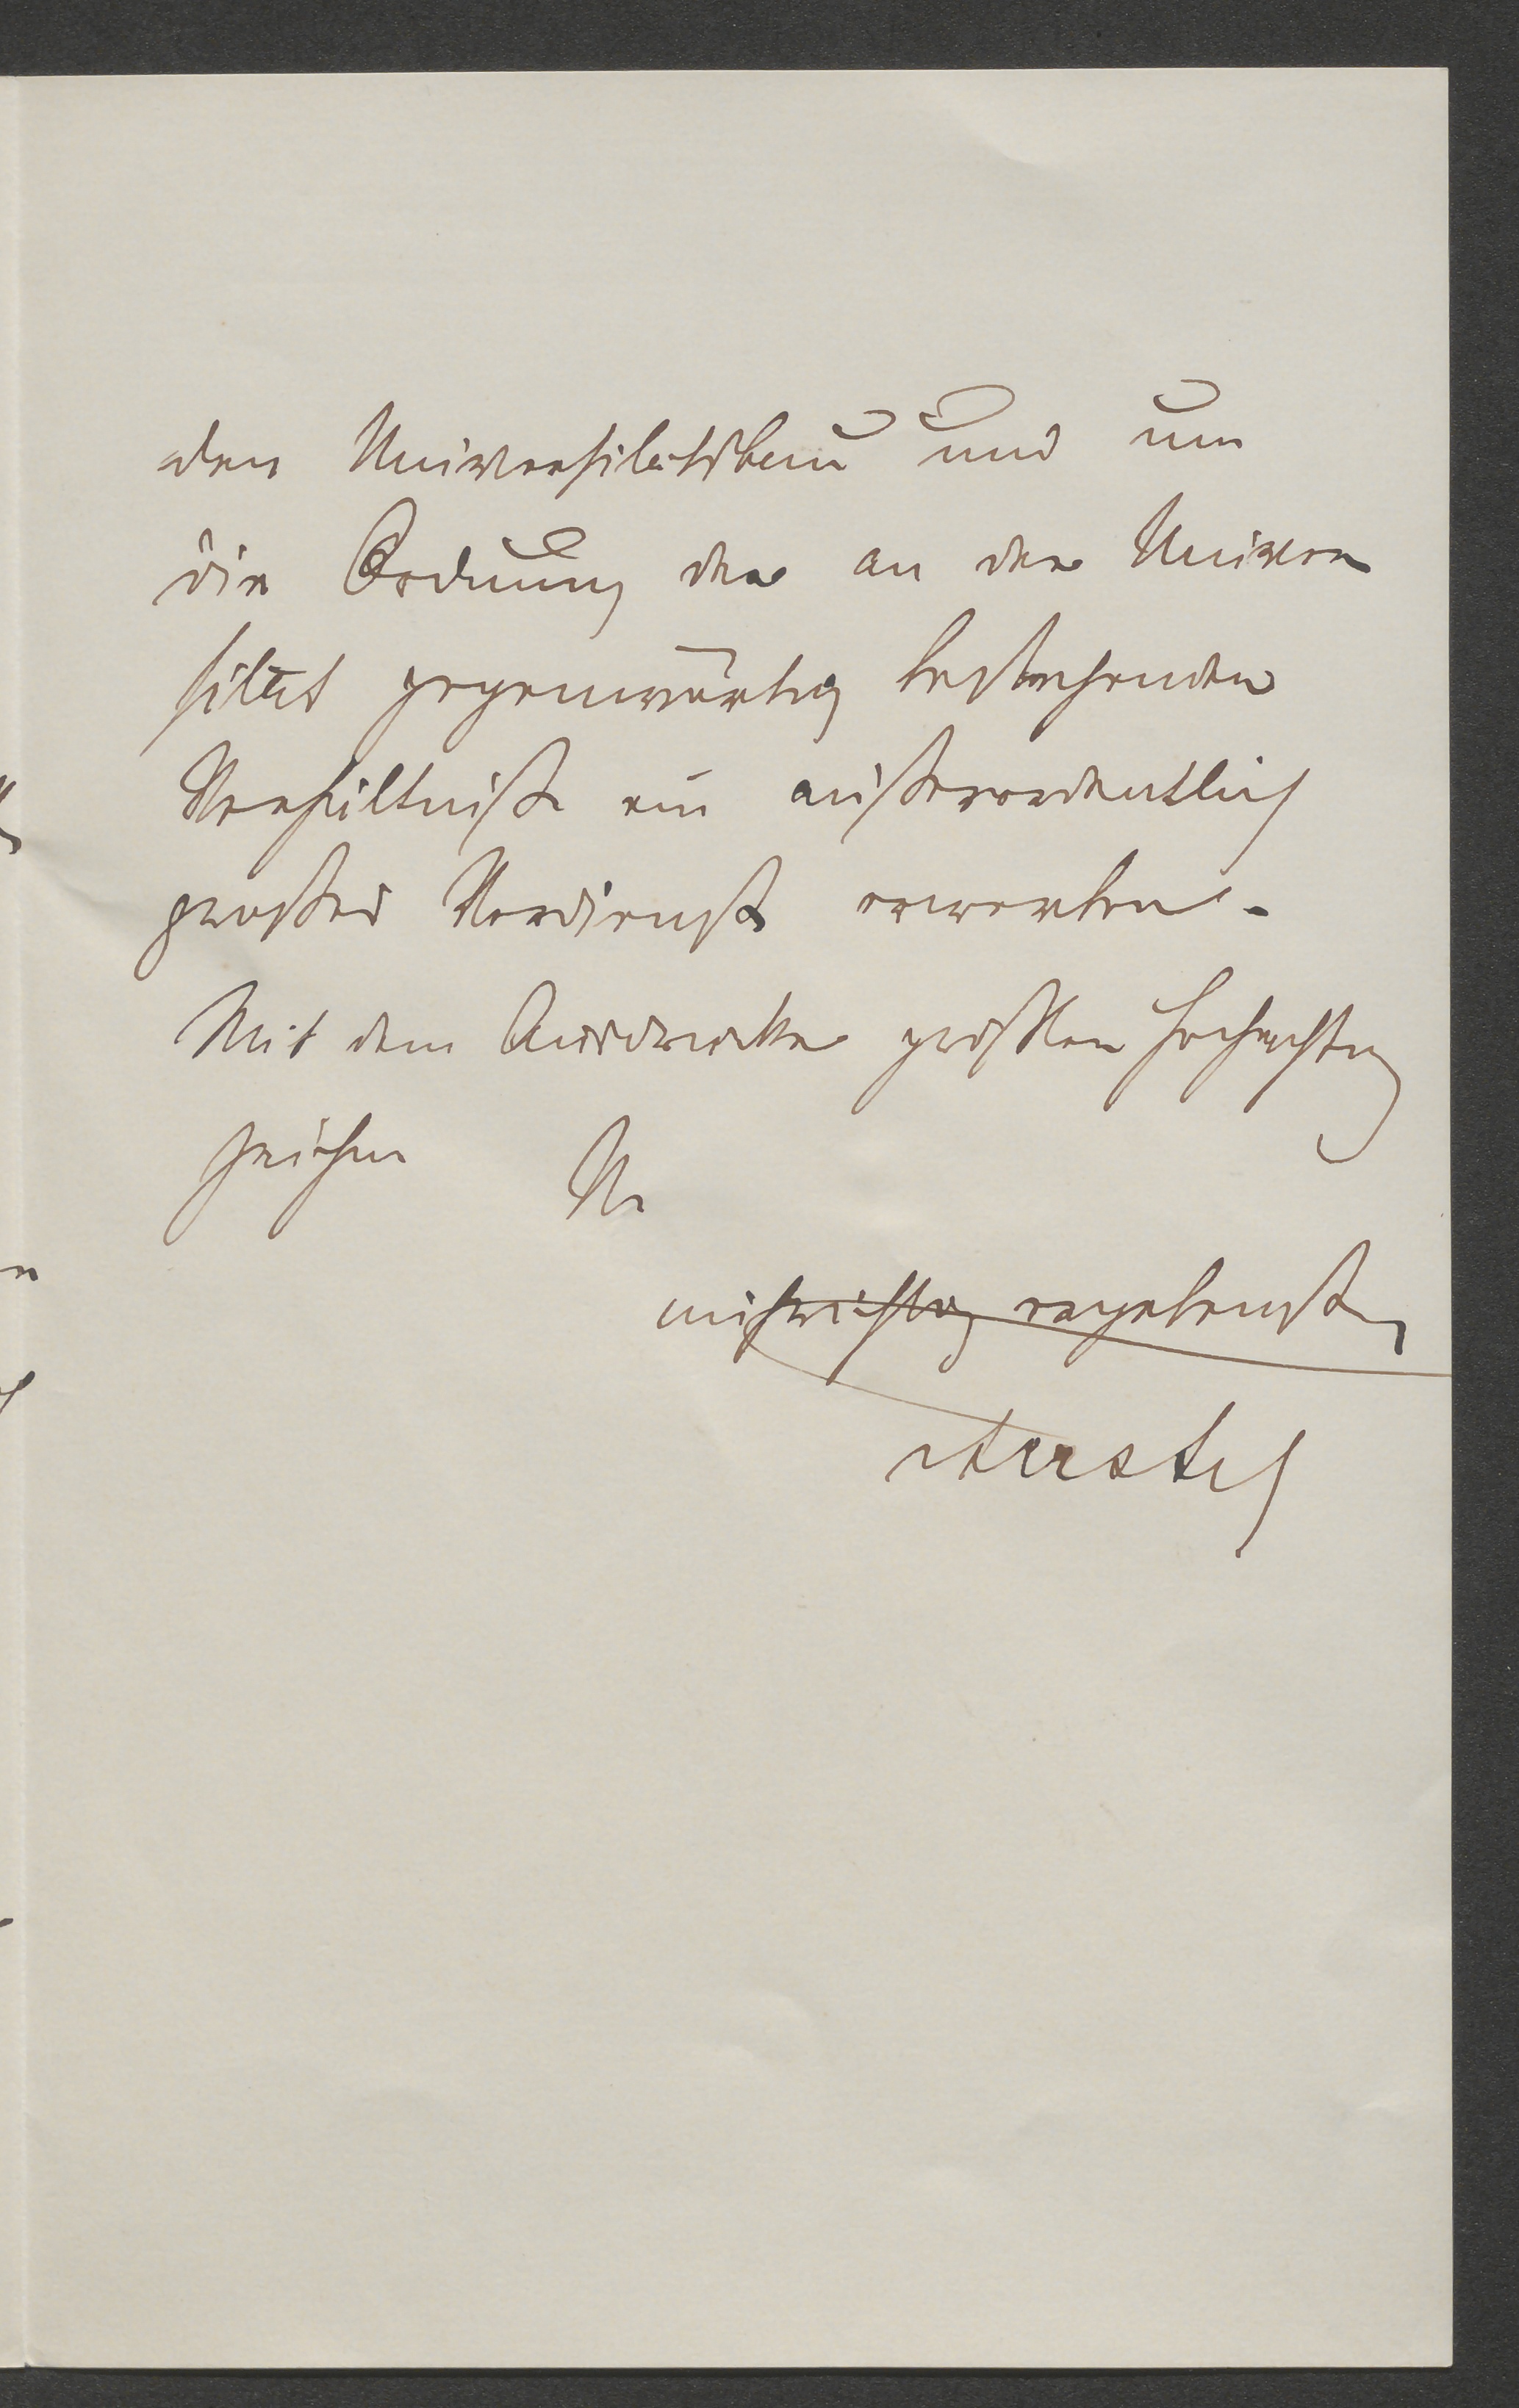 den Universitätsbau und um
die Ordnung der an der Univer
sität gegenwärtig bestehenden
Verhältniße ein außerordentlich
großes Verdienst erwerben.
Mit dem Ausdrucke größter Hochachtung
zeichne
aufrichtig ergebenster
Ferstel